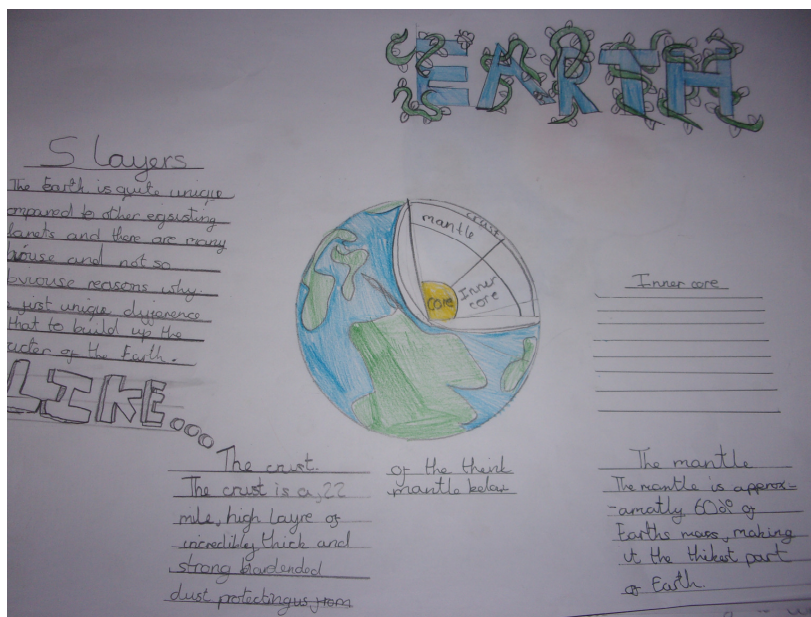 EARTH
5 layers
The Earth is quite unique
ompared to other egsisting
lanets and there are many
biouse and not so
bviouse reasons why.
first unique difference
that to build up the
of the Earth.
LIKE...
crust
mantle
core
Inner
core
Inner core
The crust.
The crust is a, 22
mile, high layre of
incredibly thick and
strong hardended
dust protecting us from
of the think
mantle below
The mantle
The mantle is approx-
-amatly 60% of
Earths mass, making
it the thikest part
of Earth.